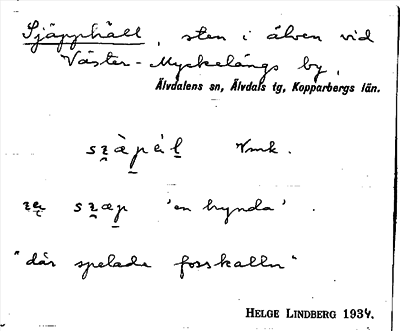 Sjäpphäll, sten i älven vid
Väster-Myckelängs by,
Älvdalens sn, Älvdals tg, Kopparbergs län.
szȧ̀pèl Vmk.
szæp 'en hynda'.
"där spelade forskalln"
HELGE LINDBERG 1934.